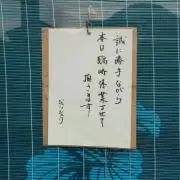 誠に勝手ながら
本日臨時休業させて
頂きます